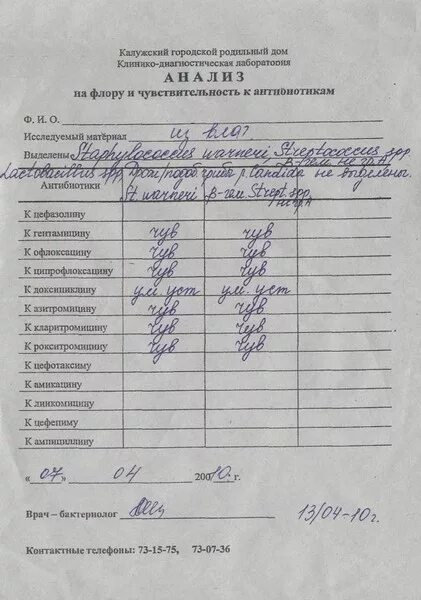 Калужский городской родильный дом
Клинико-диагностическая лаборатория
АНАЛИЗ
на флору и чувствительность к антибиотикам
Ф. И. О.
Исследуемый материал из влаг.
Выделены Staphylococcus warneri Streptococcus spp.
β-гем. не гр A
Lactobacillus spp. Дрожжеподоб гриба р. Candida не выделены.
Антибиотики St. warneri β-гем. Strept. spp.
не гр A
К цефазолину
К гентамицину чув чув
К офлоксацину чув чув
К ципрофлоксацину чув чув
К доксициклину ум. уст ум. уст
К азитромицину чув чув
К кларитромицину чув чув
К рокситромицину чув чув
К цефотаксиму
К амикацину
К линкомицину
К цефепиму
К ампициллину
«07» 04 20010 г.
Врач – бактериолог 13/04-10г.
Контактные телефоны: 73-15-75, 73-07-36